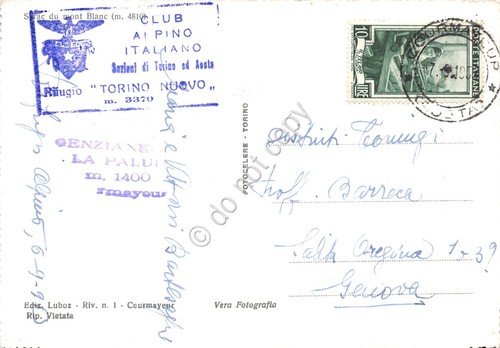 Sérac du mont Blanc (m. 4810)
CLUB
ALPINO
ITALIANO
Sezioni di Torino ed Aosta
Rifugio "TORINO NUOVO"
m. 3370
GENZIANE
LA PALU
m. 1400
rmayeur
Maria e Vittorio
6-9-953
FOTOCELERE - TORINO
LIRE 10
Prof. Barreca
Salita Oregina 1-39
Genova
Ediz. Luboz - Riv. n. 1 - Courmayeur
Rip. Vietata
Vera Fotografia
do not copy